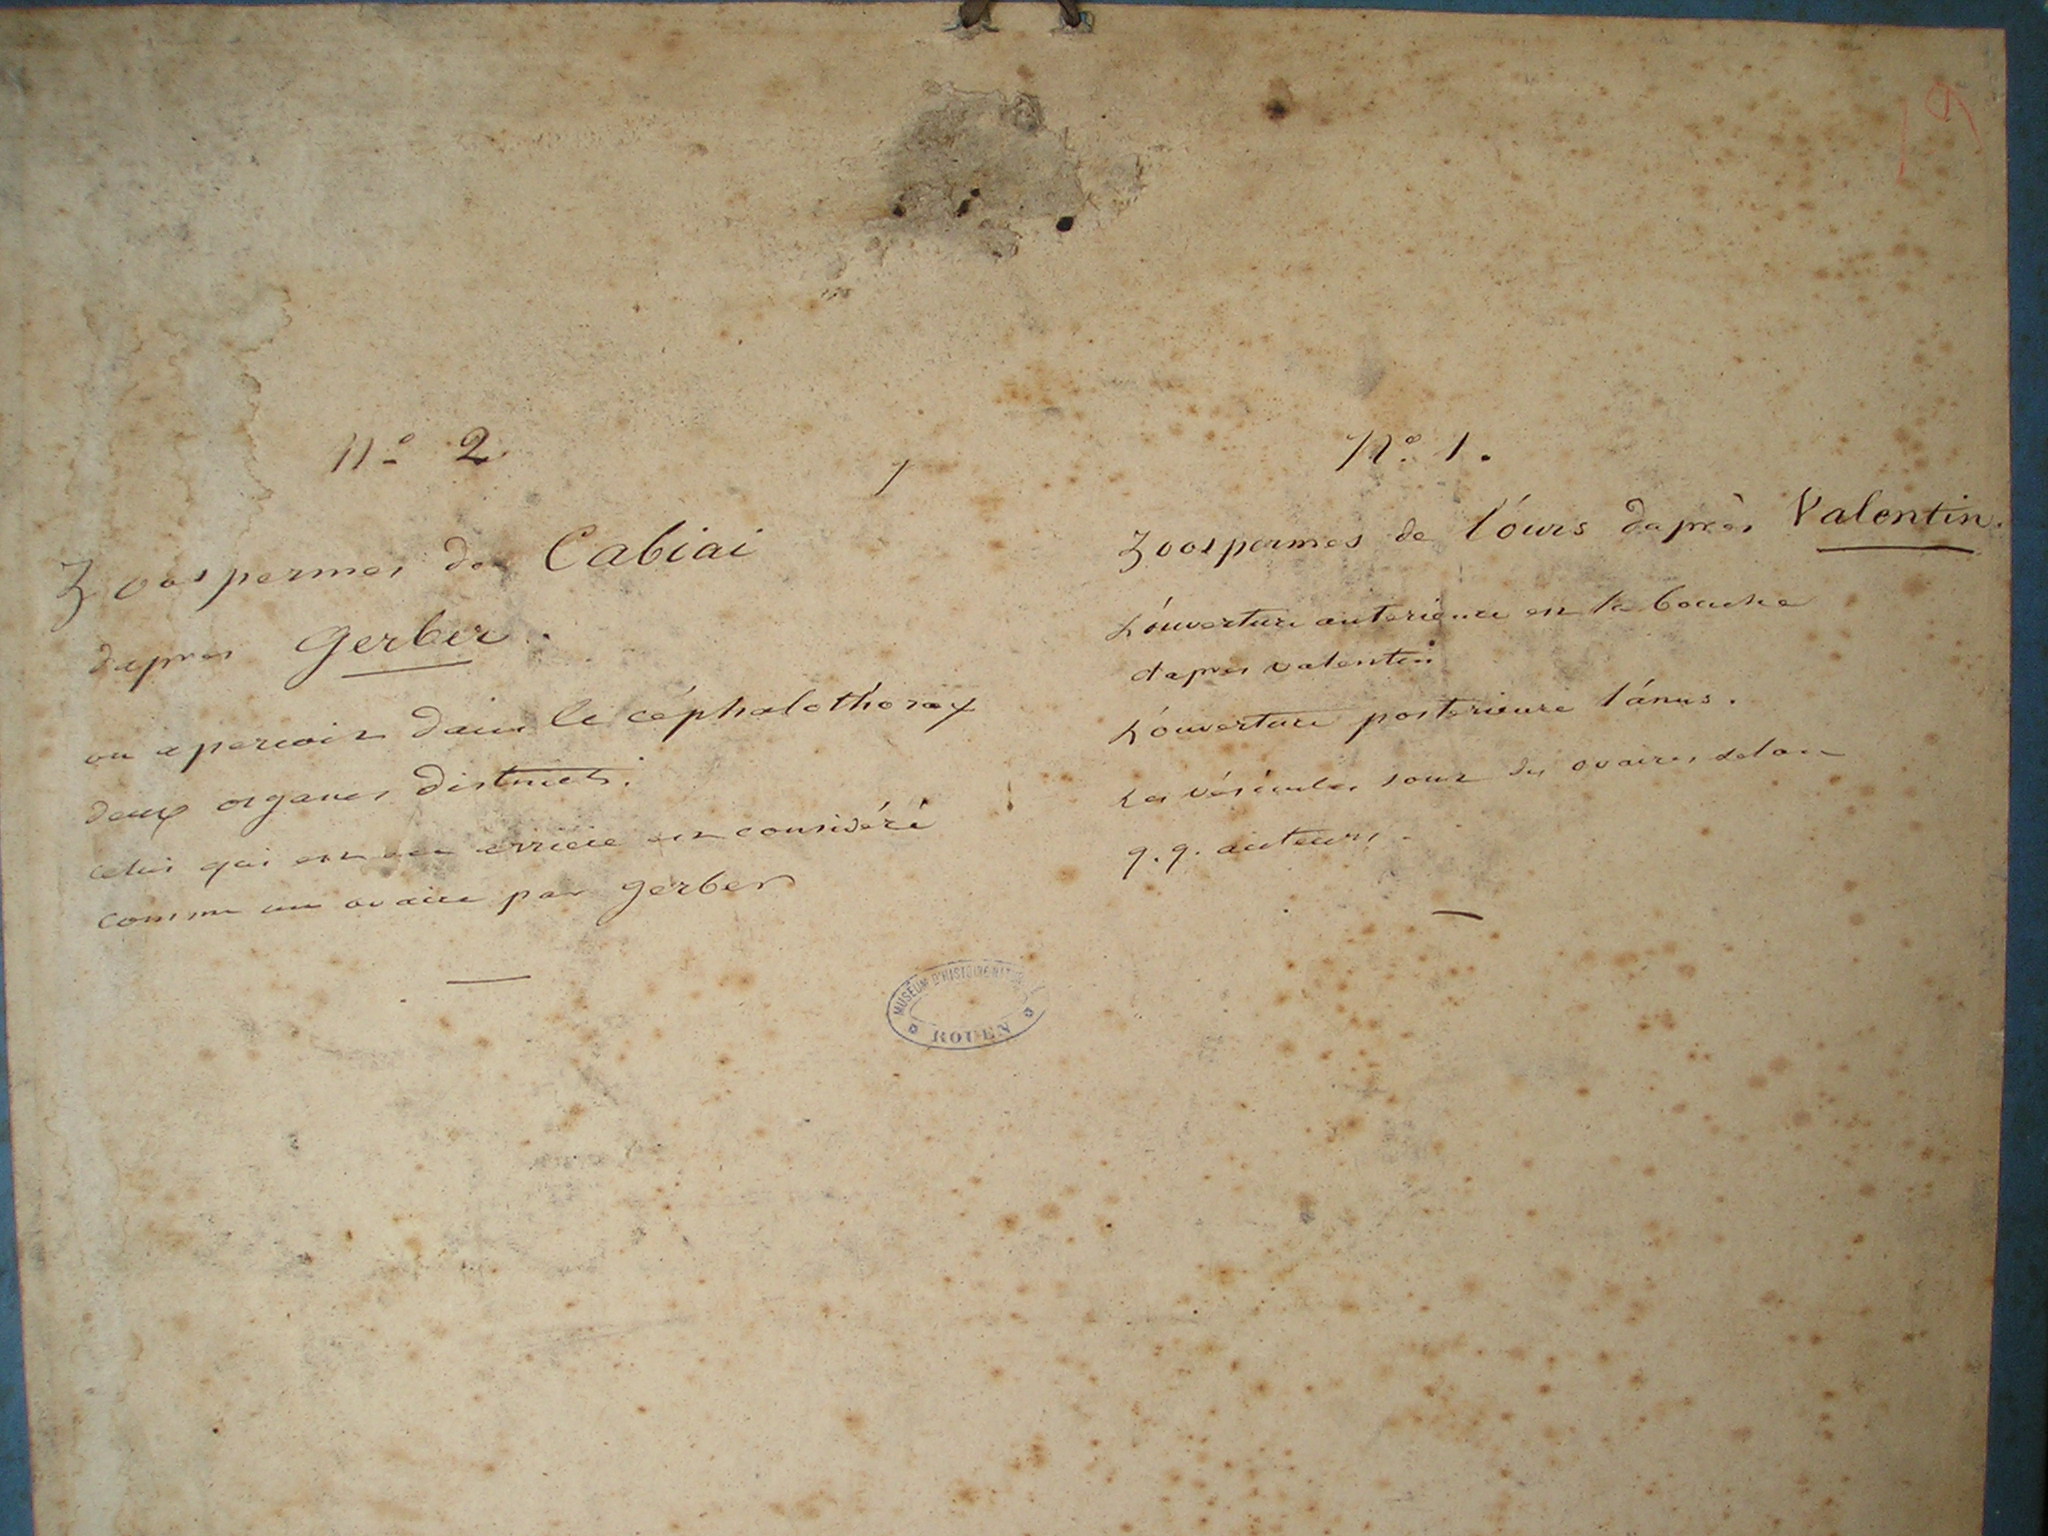 19
N° 2
Zoospermes de Cabiai
dapres Gerber.
on apercoit dans le céphalothorax
deux organes distincts.
celui qui est en arriere est considéré
comme un ovaire par gerber
N° 1.
Zoospermes de l'ours daprès Valentin.
L'ouverture anterieure est la bouche
dapres valentin
L'ouverture posterieure l'anus.
Les vésicules sont des ovaires selon
q. q. auteurs.
MUSEUM D'HISTOIRE NATURELLE
ROUEN